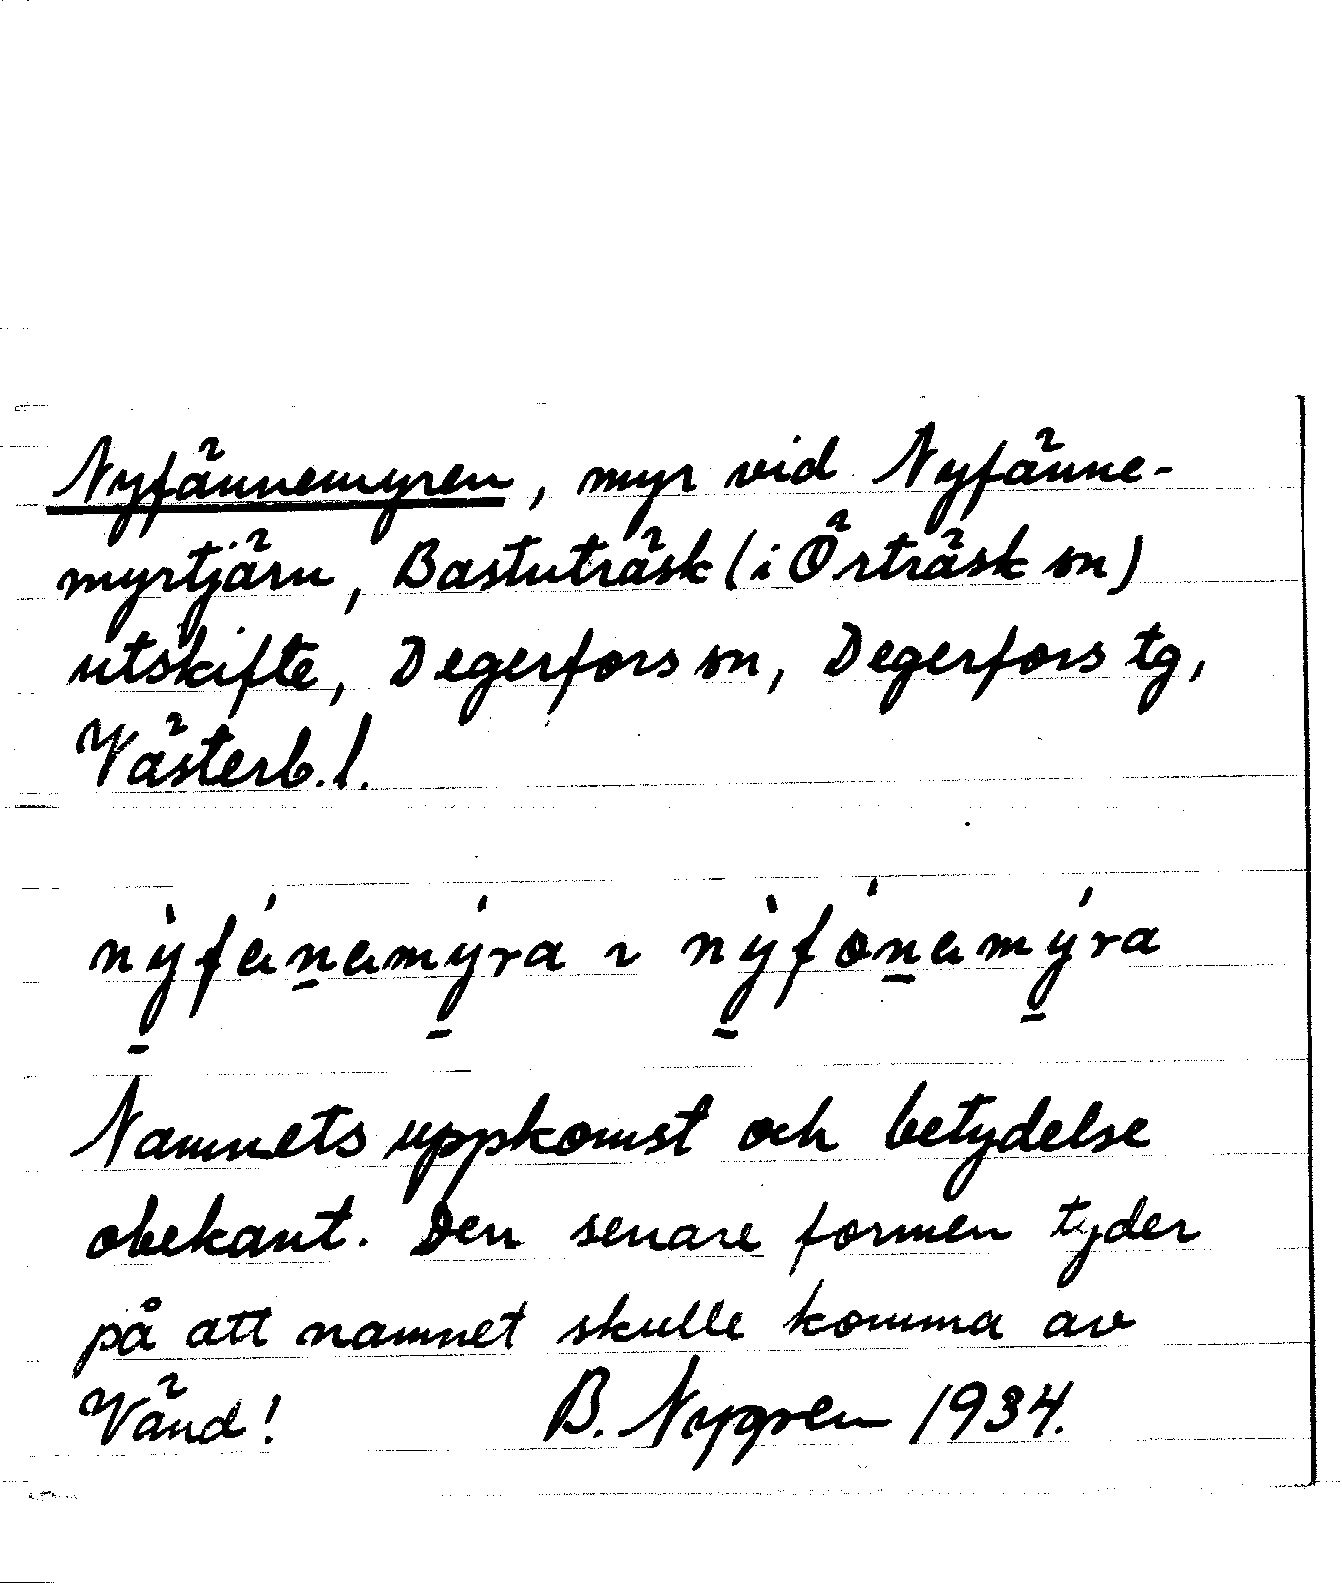 Nyfännemyren, myr vid Nyfänne-
myrtjärn, Bastuträsk (i Örträsk sn)
utskifte, Degerfors sn, Degerfors tg,
Västerb. l.
nỳfánamýra ~ nỳfónamýra
Namnets uppkomst och betydelse
obekant. Den senare formen tyder
på att namnet skulle komma av
Vänd! B. Nygren 1934.